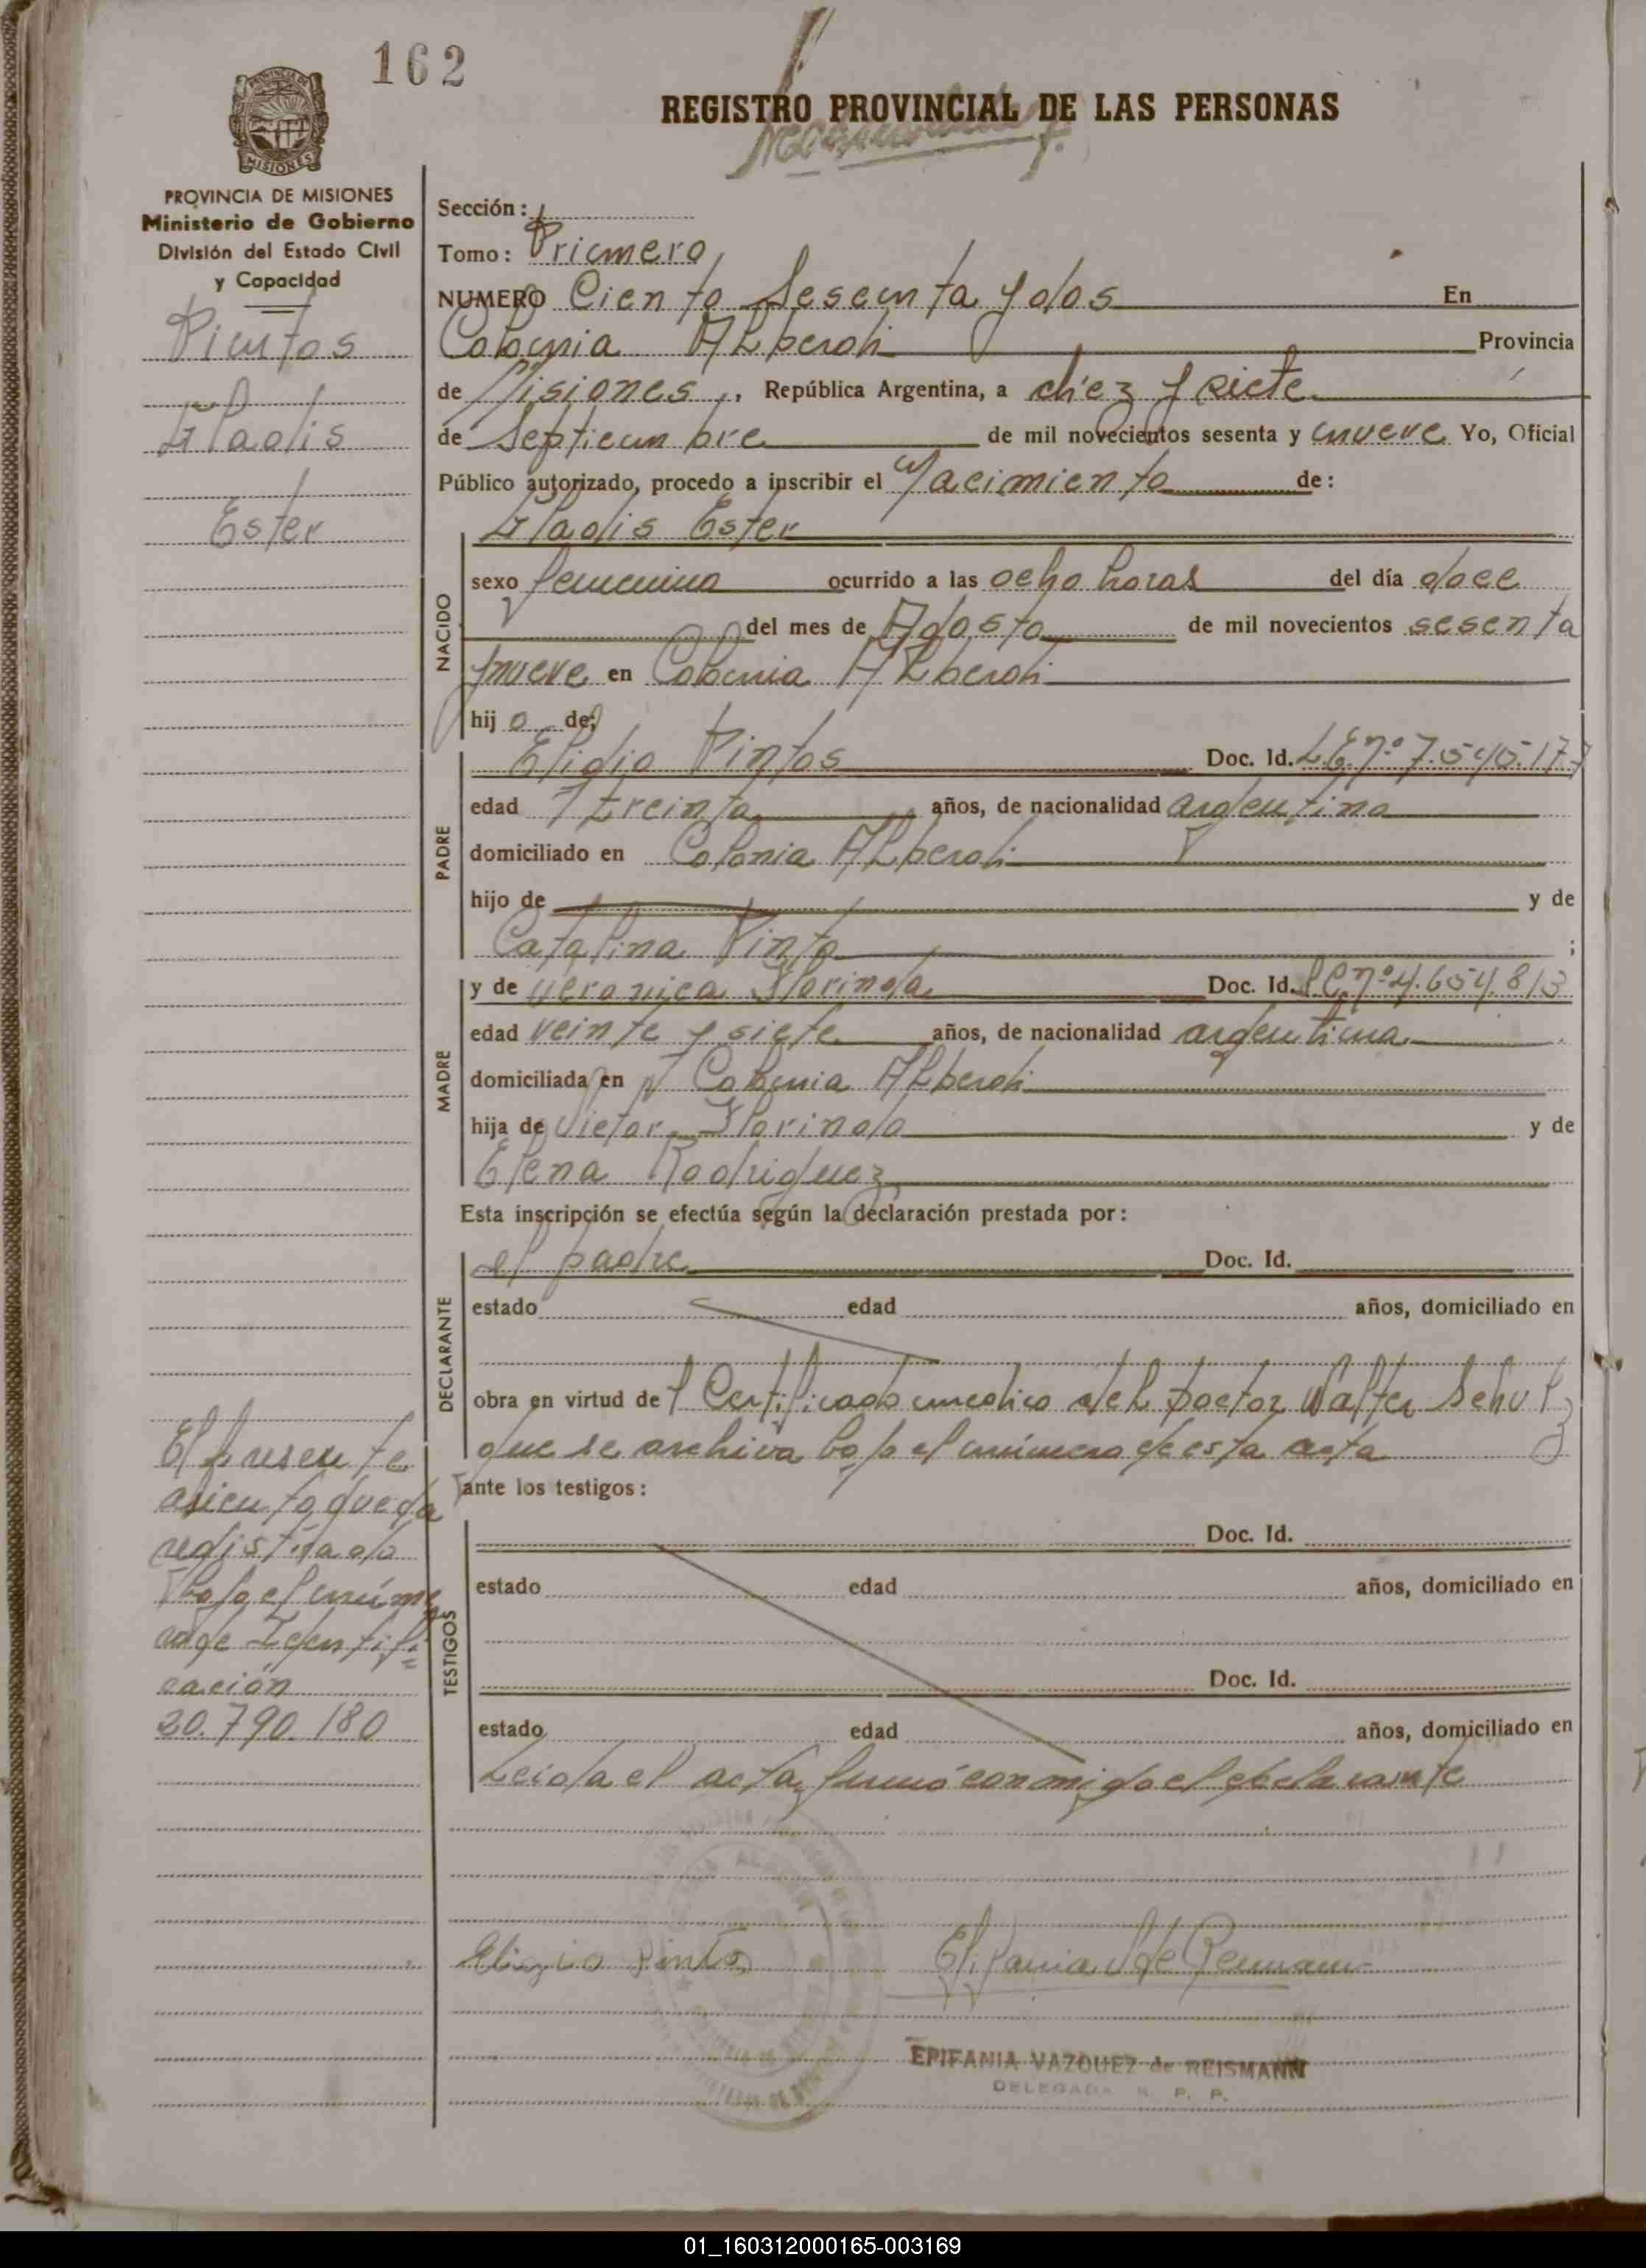 162
REGISTRO PROVINCIAL DE LAS PERSONAS
PROVINCIA DE MISIONES
PROVINCIA DE MISIONES
Ministerio de Gobierno
División del Estado Civil
y Capacidad
Pintos
Gladis
Ester
Sección:
Tomo: Primero
NUMERO Ciento Sesenta y dos En
Colonia Alberdi Provincia
de Misiones, República Argentina, a diez y siete
de Septiembre de mil novecientos sesenta y nueve Yo, Oficial
Público autorizado, procedo a inscribir el Nacimiento de:
Gladis Ester
NACIDO
sexo femenino ocurrido a las ocho horas del día doce
del mes de Agosto de mil novecientos sesenta
y nueve en Colonia Alberdi
hij o de:
PADRE
Elidio Pintos Doc. Id. L.E.nº 7.545.177
edad treinta años, de nacionalidad argentina
domiciliado en Colonia Alberdi
hijo de y de
Catalina Pinto ;
MADRE
y de Veronica Florinda Doc. Id. L.C.nº 4.654.813
edad veinte y siete años, de nacionalidad argentina
domiciliada en Colonia Alberdi
hija de Victor Florindo y de
Elena Rodriguez
Esta inscripción se efectúa según la declaración prestada por:
DECLARANTE
el padre Doc. Id.
estado edad años, domiciliado en
obra en virtud del Certificado medico del Doctor Walter Schulz
que se archiva bajo el número de esta acta
ante los testigos:
TESTIGOS
Doc. Id.
estado edad años, domiciliado en
Doc. Id.
estado edad años, domiciliado en
Leida el acta, firmó conmigo el declarante
El presente
asiento queda
registrado
bajo el núme
ro de Identifi=
cación
20.790.180
EPIFANIA VAZQUEZ de REISMANN
DELEGADA R. P. P.
01_160312000165-003169